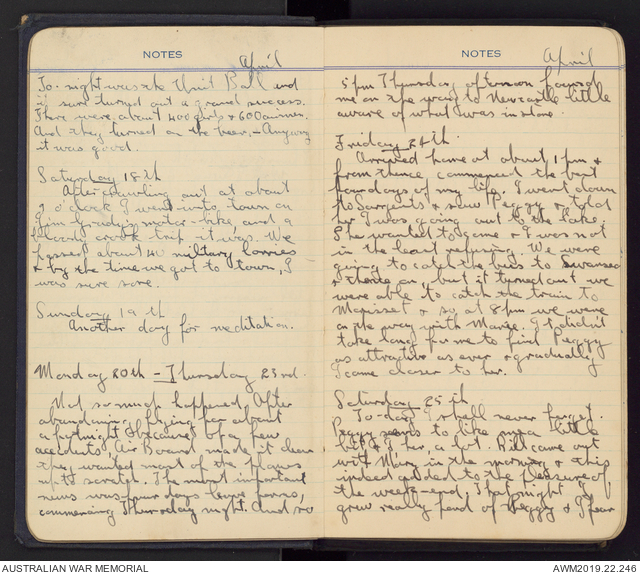 NOTES
April
To-night was the Unit Ball and
it sure turned out a grand success.
There were about 400 girls & 600 airmen.
And they turned on the beer, - Anyway
it was good.
Saturday 18th
After crawling out at about
9 o'clock I went into town on
Jim Grady's motor-bike, and a
bloody crook trip it was. We
passed about 40 military lorries
& by the time we got to town, I
was sure sore.
Sunday 19th
Another day for meditation.
Monday 20th - Thursday 23rd.
Not so much happened. After
abandoning flying for about
a fortnight because of a few
accidents, Air Board made it clear
they wanted most of the planes
up to scratch. The most important
news was four days leave
commencing Thursday night. And so
NOTES
April
5 pm Thursday afternoon found
me on the way to Newcastle little
aware of what was in store.
Friday 24th
Arrived home at about 1 pm &
from thence commenced the best
four days of my life. I went down
to Sargents & saw Peggy & told
her I was going out to the Lake.
She wanted to come & I was not
in the least refusing. We were
going to catch the bus to Swansea
& thence on, but it turned out we
were able to catch the train to
Morisset & so at 8 pm we were
on the way with Marie. It didn't
take long for me to find Peggy
as attractive as ever & gradually
I came closer to her.
Saturday 25th
To-day I shall never forget.
Peggy seems to like me a little
bit & I her, a lot. Bill came out
with Mary in the morning & this
indeed added to the pleasure of
the week-end. That night I
grew really fond of Peggy & I fear
AUSTRALIAN WAR MEMORIAL
AWM2019.22.246